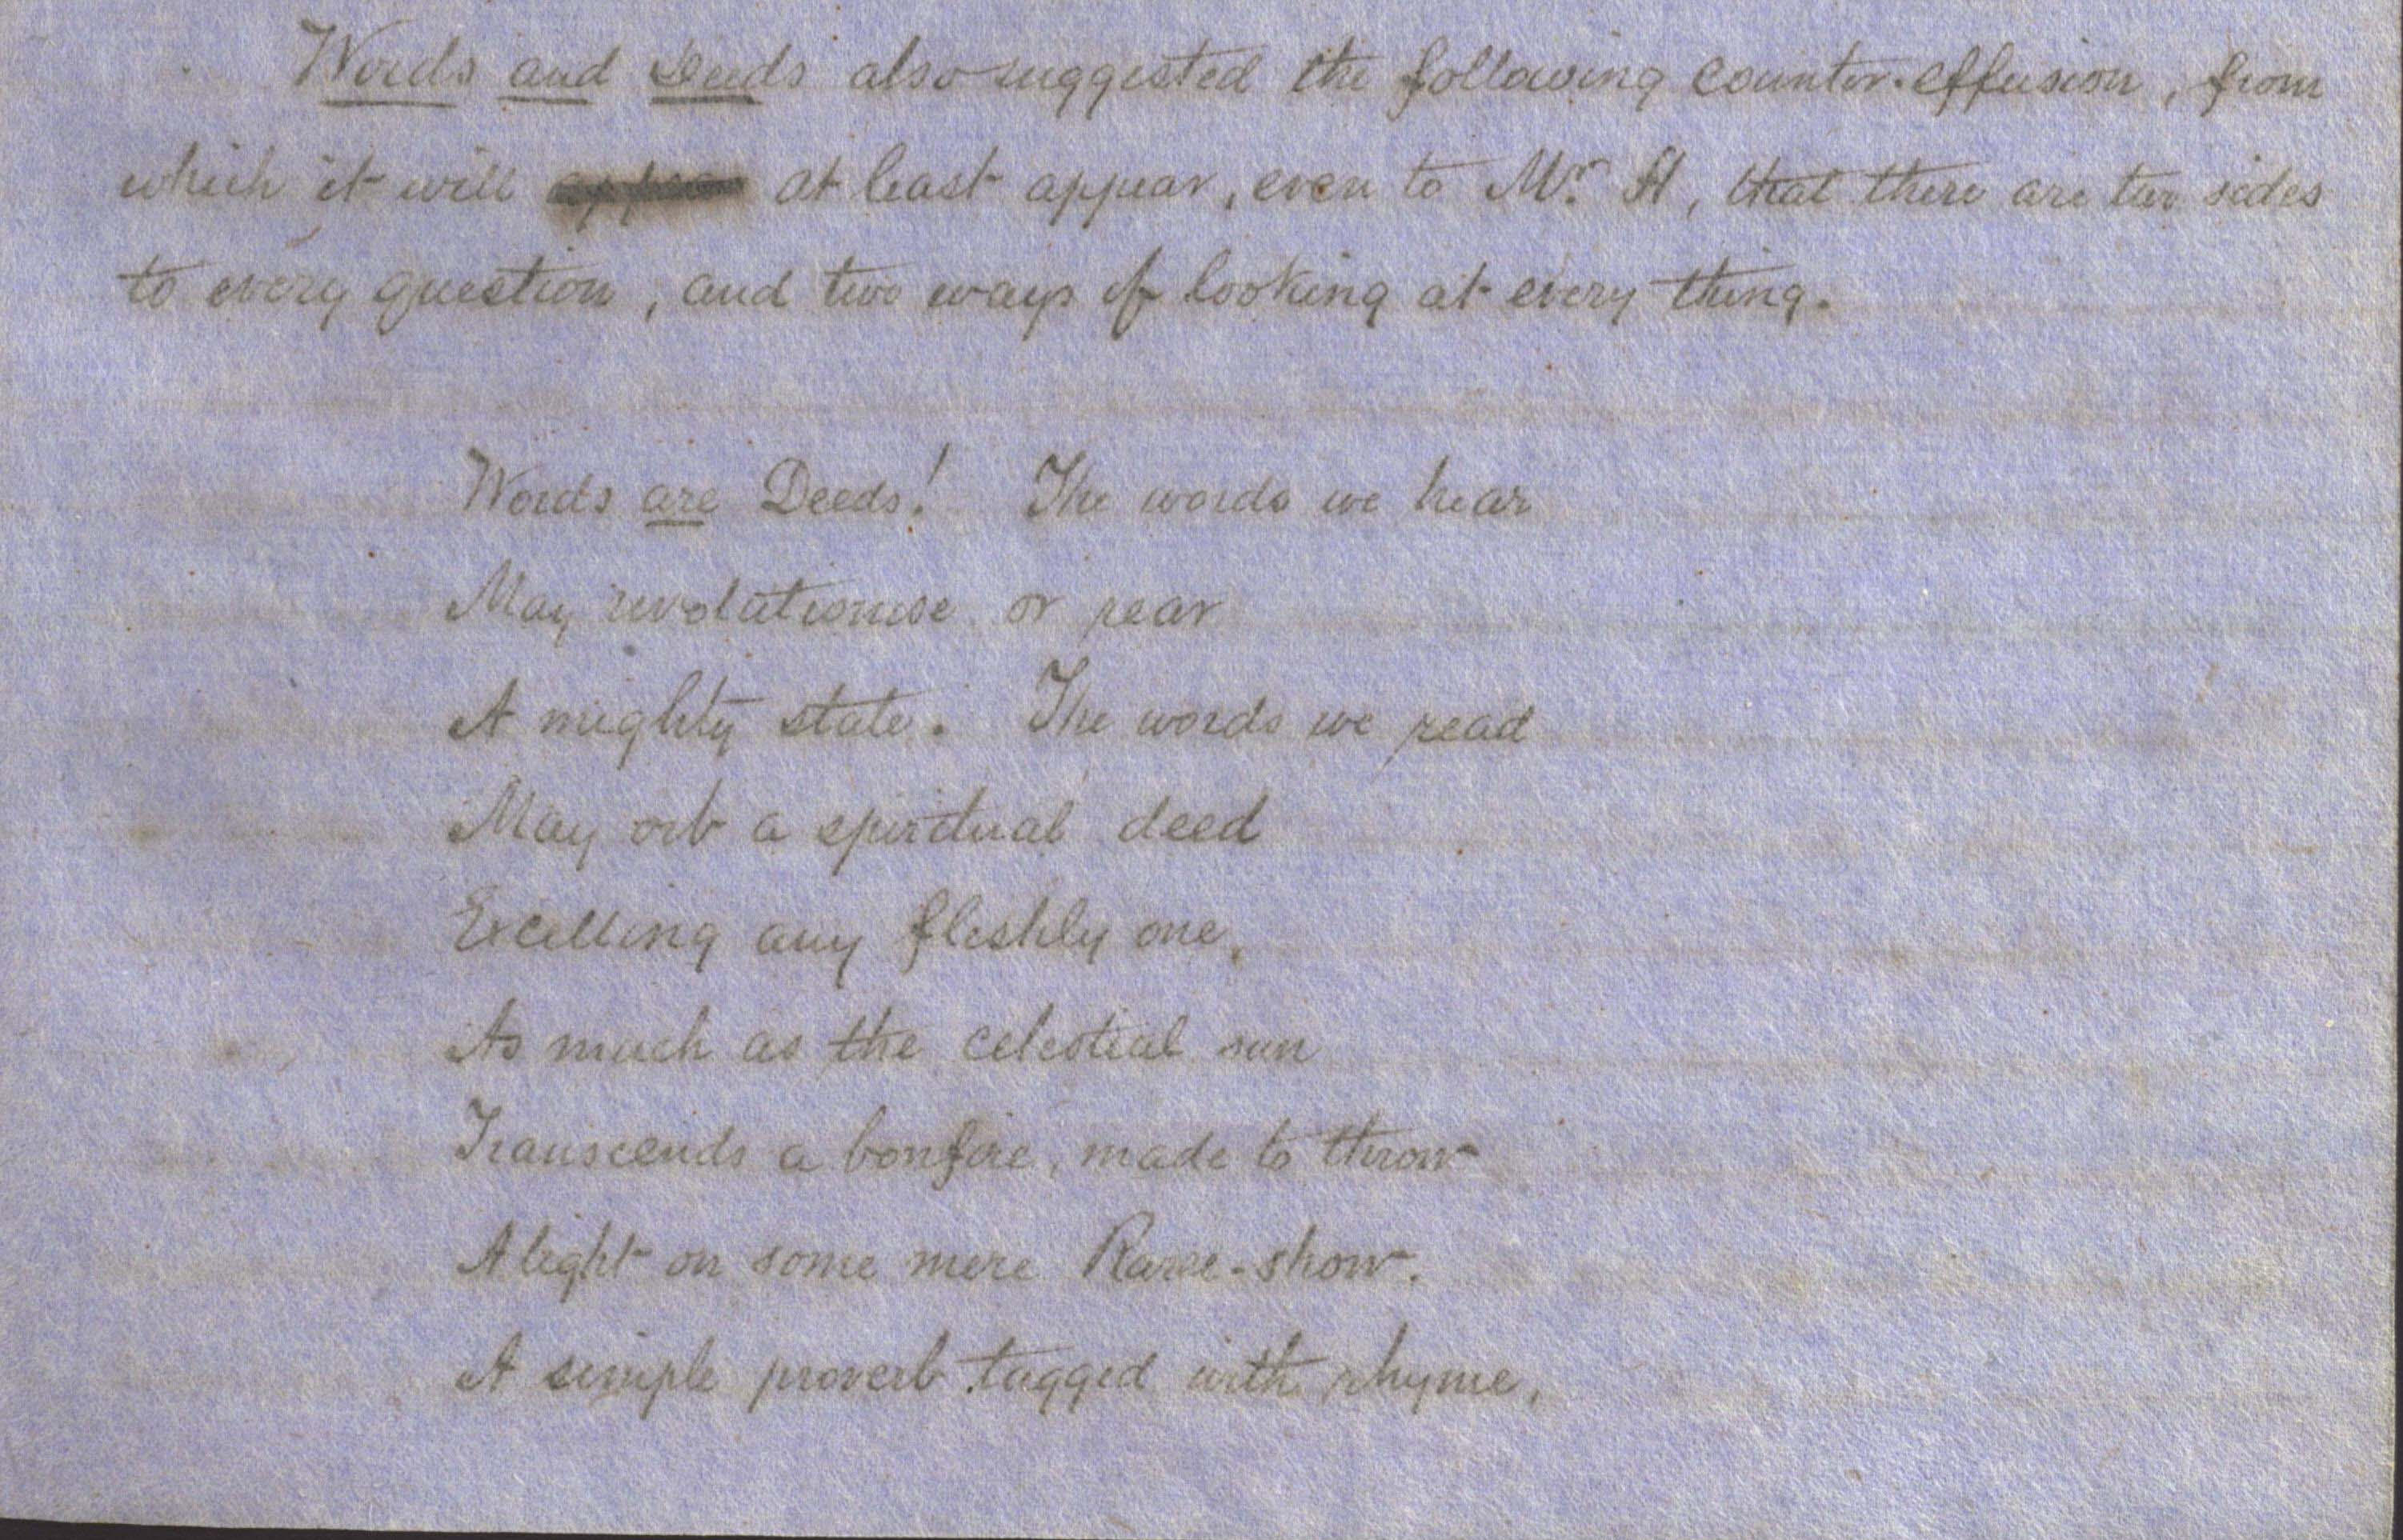 Words and Deeds also suggested the following counter-effusion, from
which it will appear at least appear, even to Mr. A, that there are two sides
to every question, and two ways of looking at every thing.
Words are Deeds! The words we hear
May revolutionise or rear
A mighty state. The words we read
May orb a spiritual deed
Excelling any fleshly one,
As much as the celestial sun
Transcends a bonfire, made to throw
A light on some mere Raree-show.
A simple proverb tagged with rhyme,